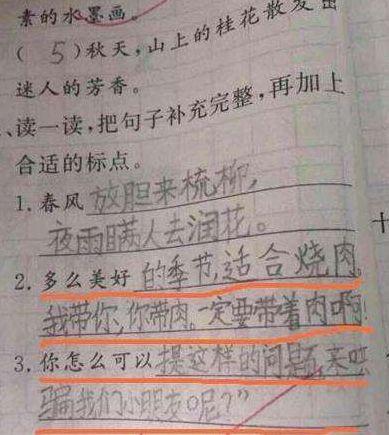 素的水墨画。
（ 5 ）秋天，山上的桂花散发出
迷人的芳香。
、读一读，把句子补充完整，再加上
合适的标点。
1. 春风 放胆来梳柳，
夜雨瞒人去润花。
2. 多么美好 的季节，适合烧肉。
我带你，你带肉。一定要带着肉啊！
3. 你怎么可以 提这样的问题来
骗我们小朋友呢？”
十